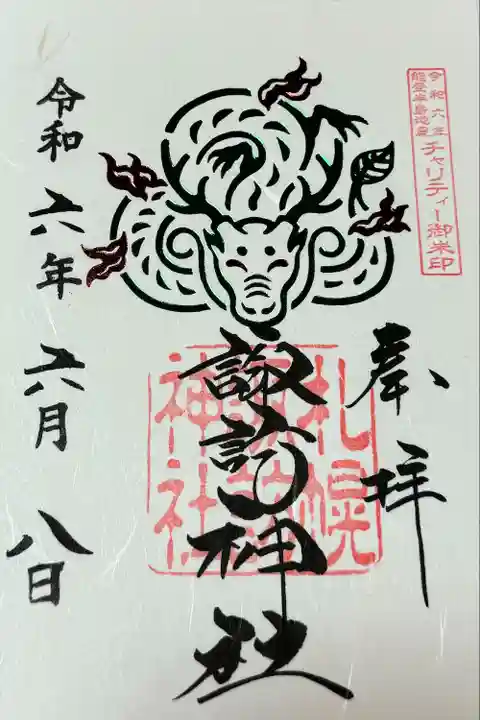 令和六年
能登半島地震
チャリティー御朱印
奉拝
札幌
諏訪
神社
諏訪神社
令和六年 六月 八日